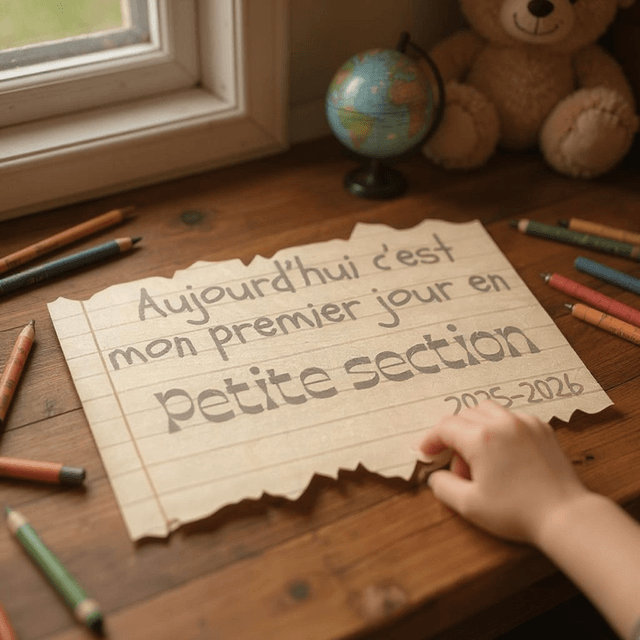 Aujourd'hui c'est
mon premier jour en
petite section
2025-2026